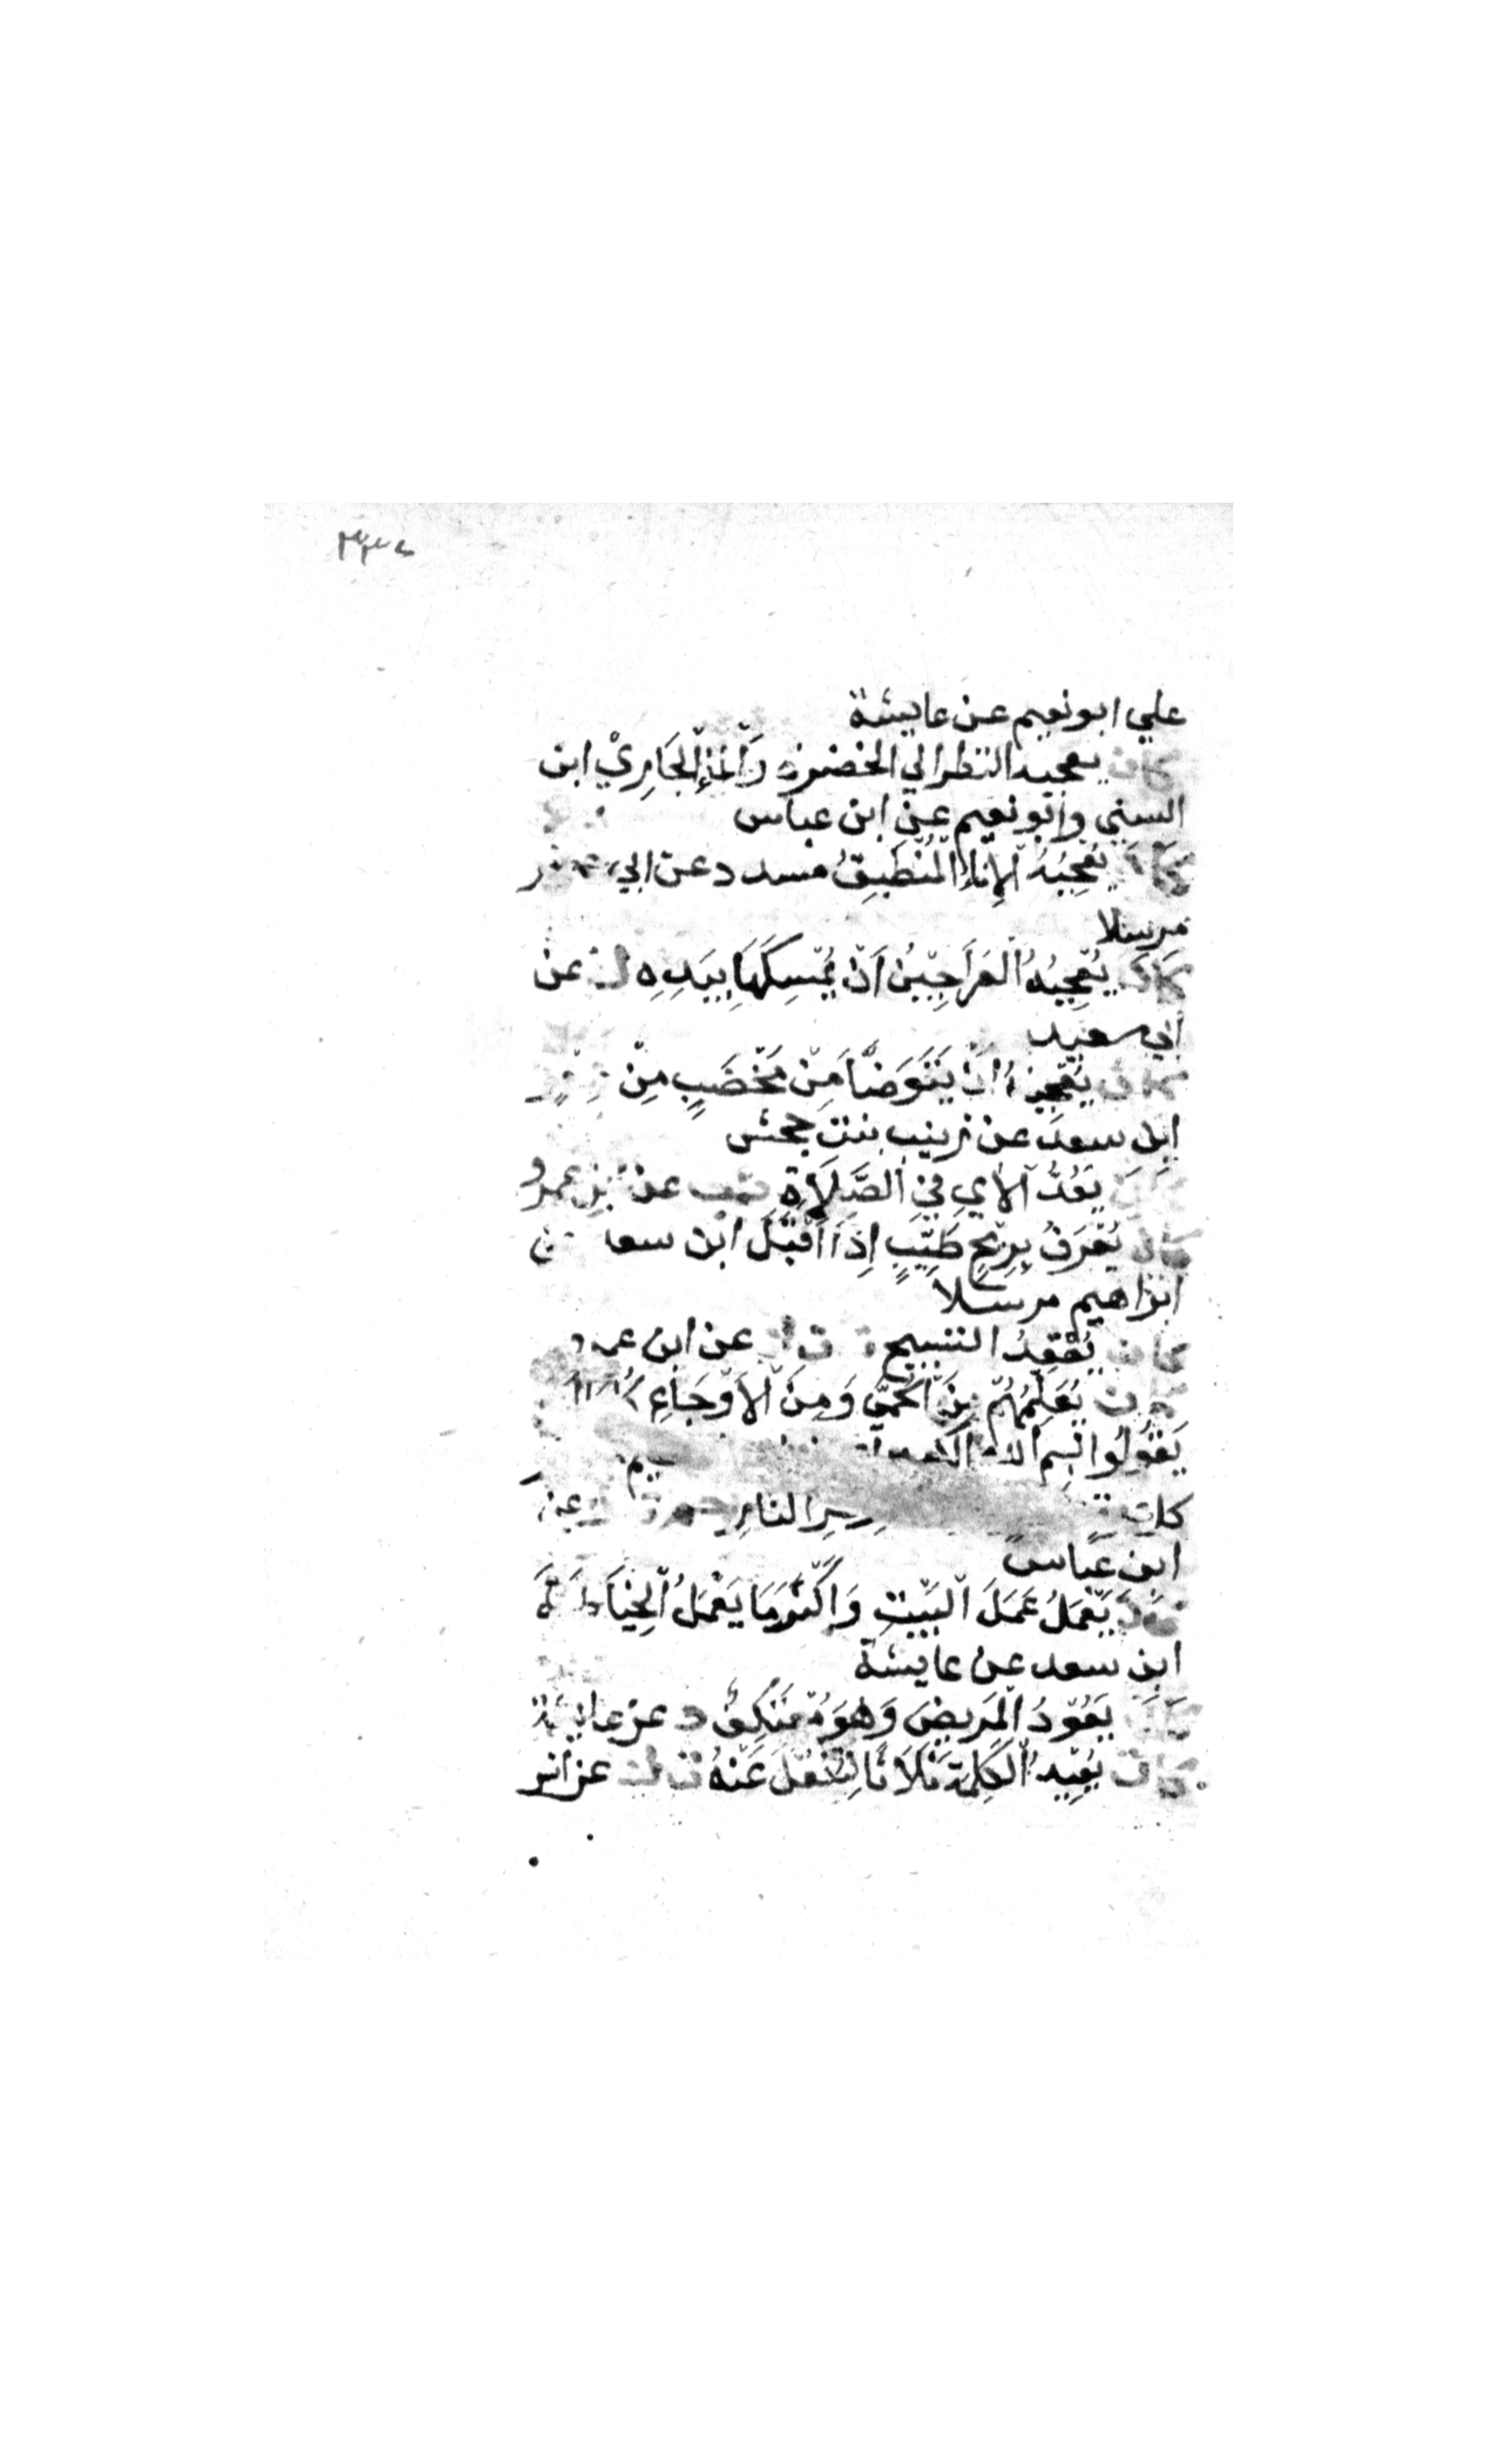 علي ابو نعيم عن عايشة
كان يعجبه النظر الي الخضرة وَالمَاءِ الْجَارِيْ ابن
السني وابو نعيم عن ابن عباس
كَانَ يُعْجِبُهُ الْإِنَاءُ الْمُنْطَبِقُ مسدد عن ابي جعفر
مرسلا
كَانَ يُعْجِبُهُ الْعَرَاجِيْنُ اَنْ يُمْسِكَهَا بِيَدِهِ ك عن
ابي سعيد
كان يُعْجِبُهُ اَنْ يَتَوَضَّأَ مِنْ مَخْضَبٍ مِنْ
ابن سعد عن زينب بنت جحش
يَعُدُّ الْاٰيِ فِي الصَّلَاةِ طب عن ابن عمرو
كان يُعْرَفُ بِرِيْحٍ طَيِّبٍ إِذَا اَقْبَلَ ابن سعد عن
ابراهيم مرسلا
كان يَعْقِدُ التسبيح ت ن ك عن ابن عمرو
كان يُعَلِّمُهُمْ مِنَ الْحُمّٰي وَمِنَ الْاَوْجَاعِ
يَقُوْلُوا بِسْمِ الله الكبير
كل حرِ النارِ حم ت عن
ابن عباس
كَانَ يَعْمَلُ عَمَلَ الْبَيْتِ وَاَكْثَرُ مَا يَعْمَلُ الْخِيَاطَةَ
ابن سعد عن عايشة
كَانَ يَعُوْدُ الْمَرِيضَ وَهُوَ مُعْتَكِفٌ د عن عايشة
كان يُعِيْدُ الْكَلِمَةَ ثَلَاثًا لِتُعْقَلَ عَنْهُ ت ك عن انس